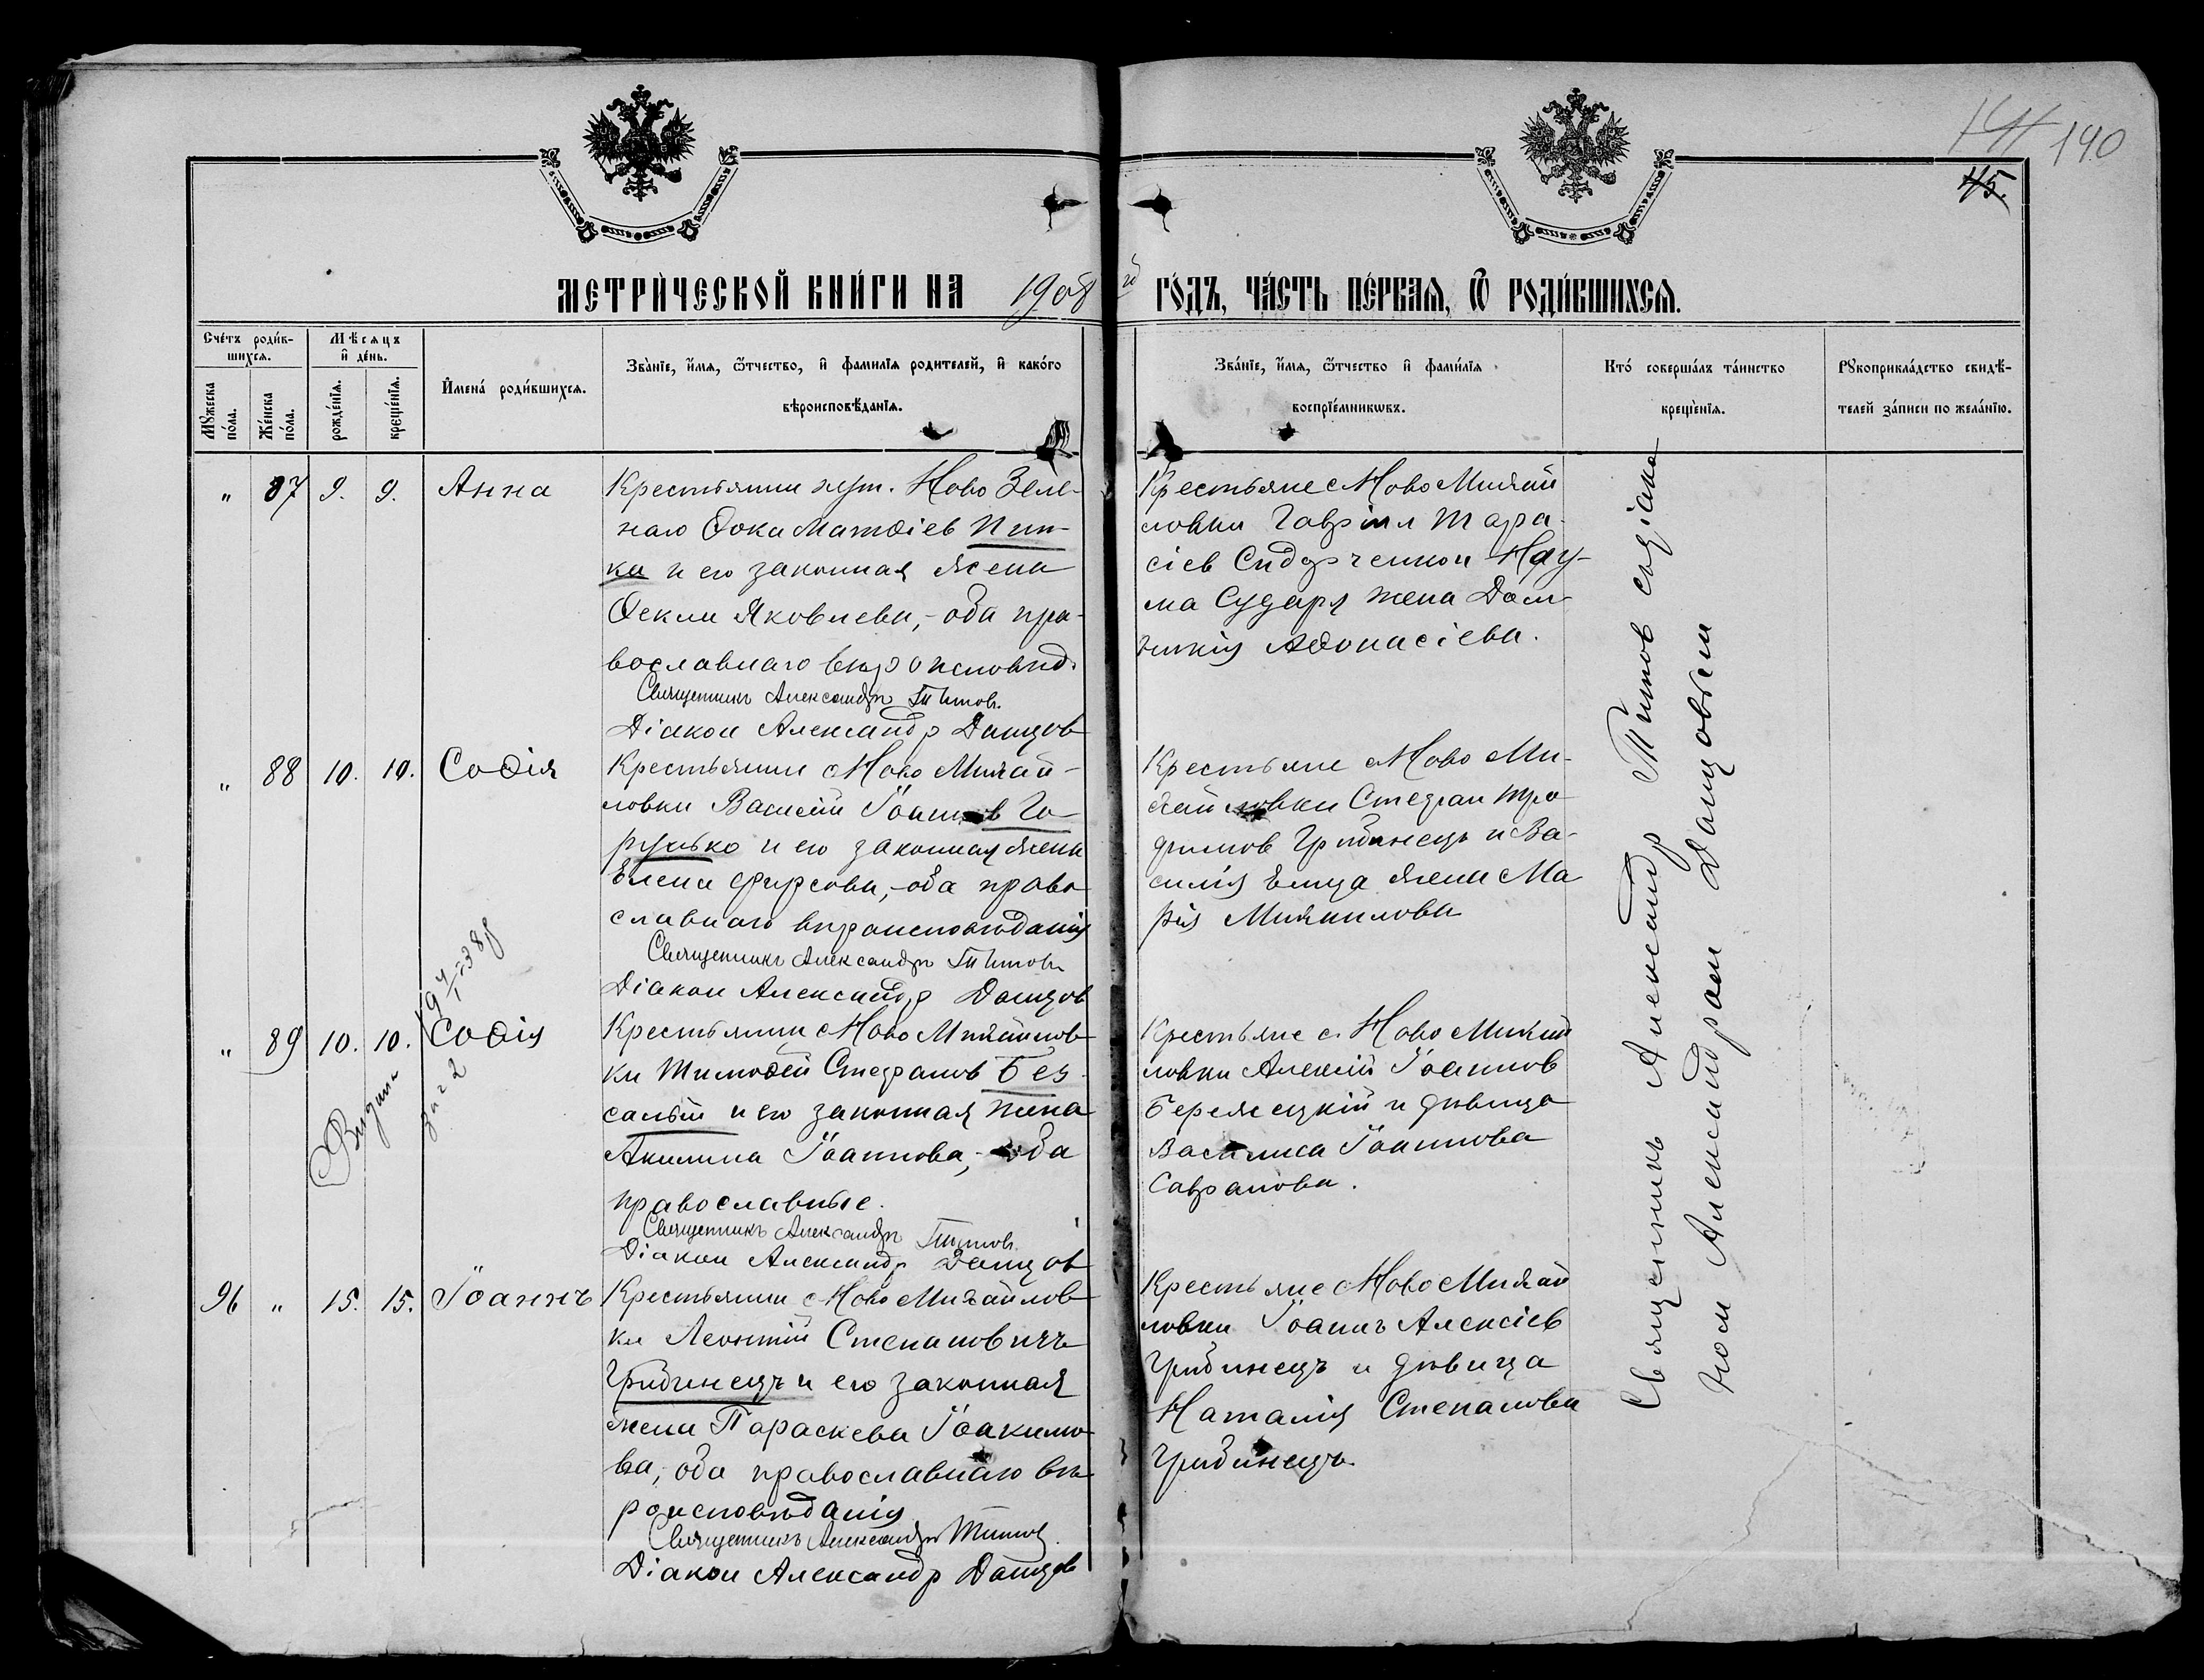 140
45.
МЕТРИЧЕСКОЙ КНИГИ НА 1908 й ГОДЪ, ЧАСТЬ ПЕРВАЯ, Ѿ РОДИВШИХСЯ.
Счетъ родившихся.
Мужеска пола.
Женска пола.
Мѣсяцъ и день.
рожденія.
крещенія.
Имена родившихся.
Званіе, имя, ѿчество, и фамилія родителей, и какого
вѣроисповѣданія.
Званіе, имя, ѿчество и фамилія
воспріемниковъ.
Кто совершалъ таинство
крещенія.
Рукоприкладство свидѣ-
телей записи по желанію.
" 87 9. 9. Анна
Крестьянин хут. Ново Зеле-
наго Фока Матѳіев Пин-
ка и его законная жена
Ѳекла Яковлева, - оба пра-
вославнаго вѣроисповѣд.
Священникъ Александръ Титовъ.
Діакон Александр Данцов
Крестьяне с Ново Михай
ловки Гавріил Тара-
сіев Сидорченко и Нау-
ма Сударя жена Дом-
никія Аѳонасіева.
" 88 10. 10. Соѳія
Крестьянин с Ново Михай-
ловки Василій Іоаннов Го-
рулько и его законная жена
Елена Фирсова, - оба право
славнаго вѣроисповѣданія
Священникъ Александръ Титовъ
Діакон Александр Данцов
Крестьяне с Ново Ми-
хайловки Стефан Тро-
фимов Грибинецъ и Ва-
силія Емца жена Ма
рія Михаилова
" 89 10. 10. Соѳія
Выдана
Крестьянин с Ново Михайлов
ки Тимоѳей Стефанов Без-
салый и его законная жена
Акилина Іоаннова, - оба
православные.
Священникъ Александръ Титовъ.
Діакон Александр Данцов
Крестьяне с. Ново Михай
ловки Алексій Іоаннов
Бережецкій и дѣвица
Василиса Іоаннова
Сафронова.
96 " 15. 15. Іоаннъ
Крестьянин с Ново Михайлов
ки Леонтій Степановичъ
Грибинецъ и его законная
жена Параскева Іоакимо
ва, оба православнаго вѣ
роисповѣданія
Священникъ Александръ Титов.
Діакон Александр Данцов
Крестьяне с Ново Михай
ловки Іоаннъ Алексіев
Грибинецъ и дѣвица
Наталія Степанова
Грибинецъ.
Священникъ Александр Титов с діако
ном Александром Данцовым